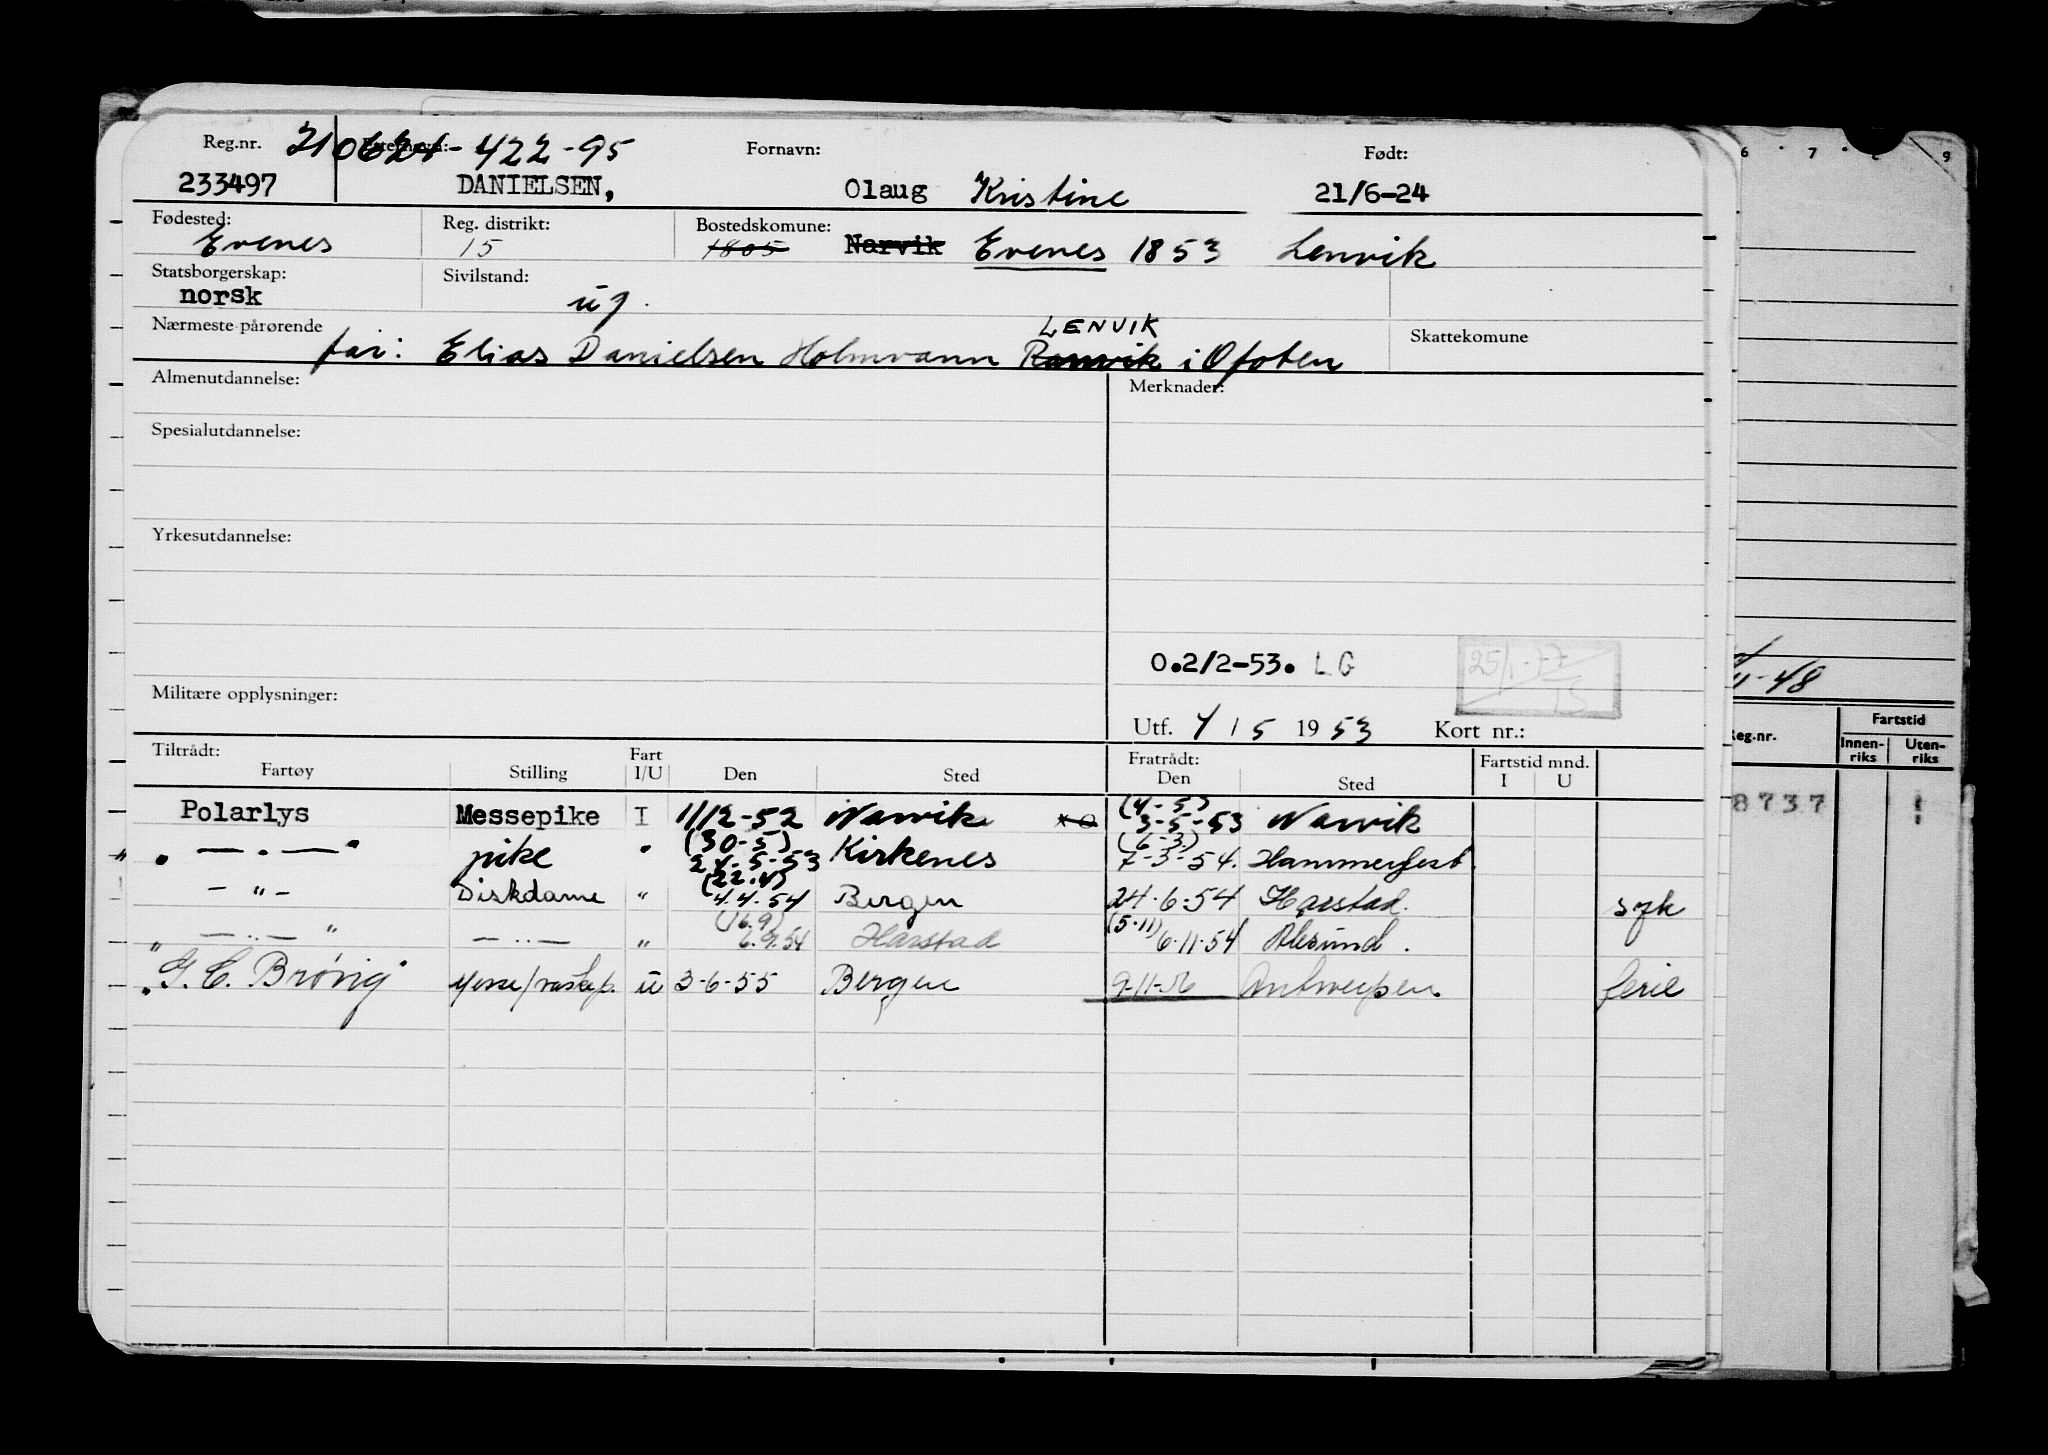 Reg.nr. 210624-422-95 Fornavn: Født:
233497 DANIELSEN, Olaug Kristine 21/6-24
Fødested: Reg. distrikt: Bostedskomune:
Evenes 15 1805 Narvik Evenes 1853 Lenvik
Statsborgerskap: Sivilstand:
norsk ug.
Nærmeste pårørende LENVIK Skattekomune
far: Elias Danielsen Holmvann Ranvik i Ofoten
Almenutdannelse: Merknader:
Spesialutdannelse:
Yrkesutdannelse:
O.2/2-53. LG
Militære opplysninger:
Utf. 7/5 1953 Kort nr.:
Tiltrådt: Fart Fratrådt: Fartstid mnd.
Fartøy Stilling I/U Den Sted Den Sted I U
(4-5)
Polarlys Messepike I 1/12-52 Narvik 3-5-53 Narvik
(30-5) (6-3)
" — " — " pike " 24-5-53 Kirkenes 7-3-54. Hammerfest.
(22.4)
— " — Diskdame " 4.4.54 Bergen 24-6-54 Harstad. syk
(16.9) (5.11)
" — " — " — " — " 6.9.54 Harstad 6.11.54 Ålesund.
"G. C. Brøvig" Messe/vaskep. U 3-6-55 Bergen 9-11-56 Antwerpen ferie
6 7 9
11-48
Reg.nr. Fartstid
Innen-riks Uten-riks
8737